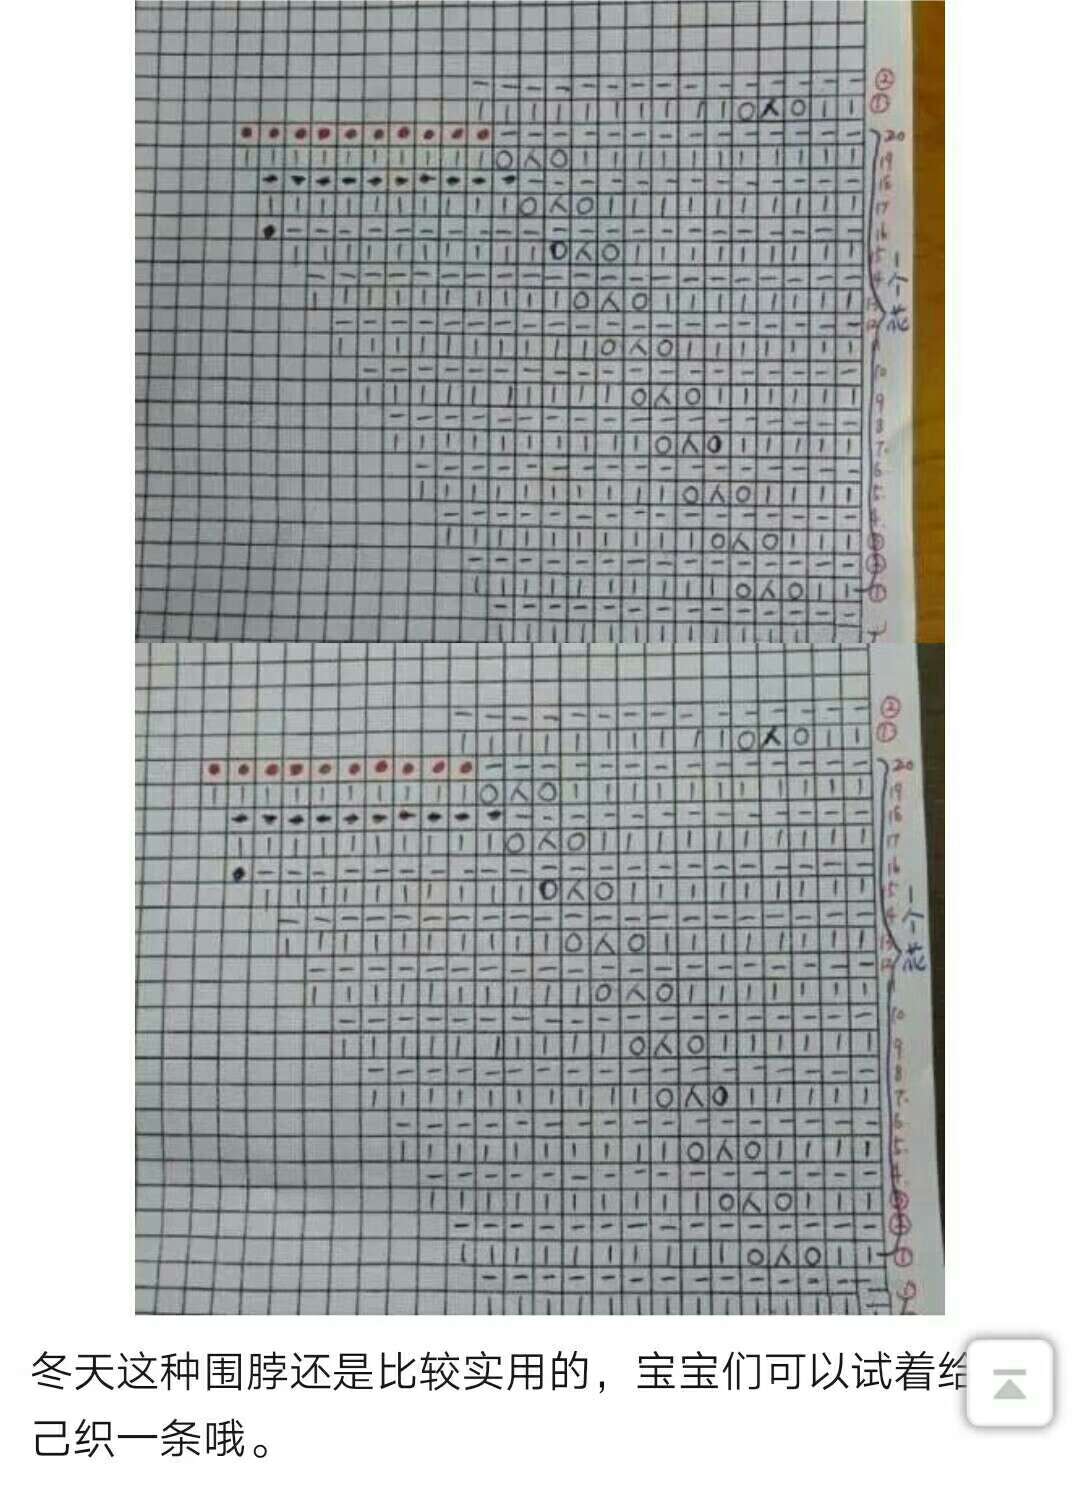 ②
①
20
19
18
17
16
15
一个花
10
9
8
7.
6
5.
4.
①
②
①
20
19
18
17
16
一个花
13
12
10
9
8
7.
6
5.
4.
①
冬天这种围脖还是比较实用的，宝宝们可以试着给
己织一条哦。